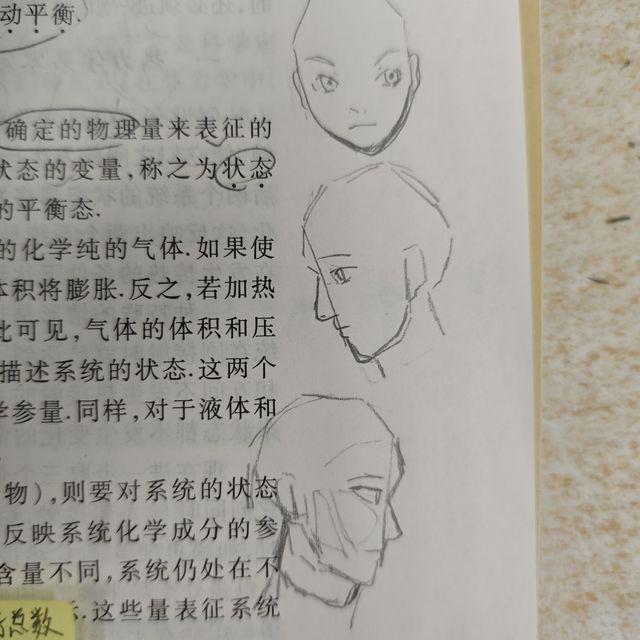 动平衡.
确定的物理量来表征的
状态的变量,称之为状态
的平衡态.
的化学纯的气体.如果使
体积将膨胀.反之,若加热
此可见,气体的体积和压
描述系统的状态.这两个
学参量.同样,对于液体和
物),则要对系统的状态
反映系统化学成分的参
含量不同,系统仍处在不
这些量表征系统
总数